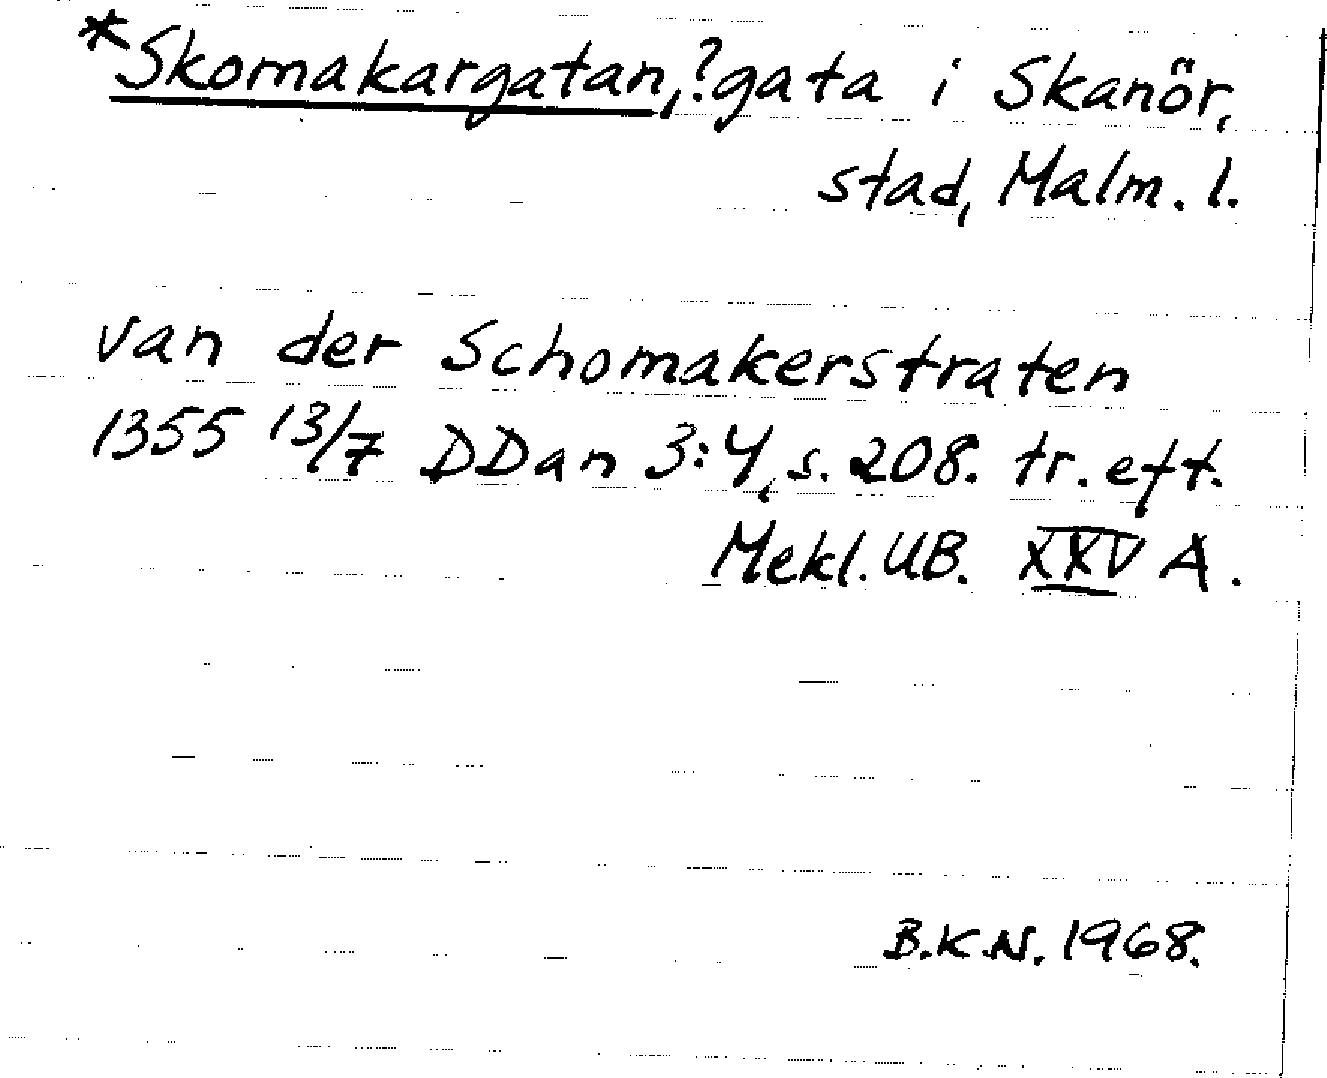 *Skomakargatan, ?gata i Skanör,
stad, Malm. l.
van der Schomakerstraten
1355 13/7 DDan 3:4, s. 208. tr. eft.
Mekl. UB. XXV A.
B.K.N. 1968.